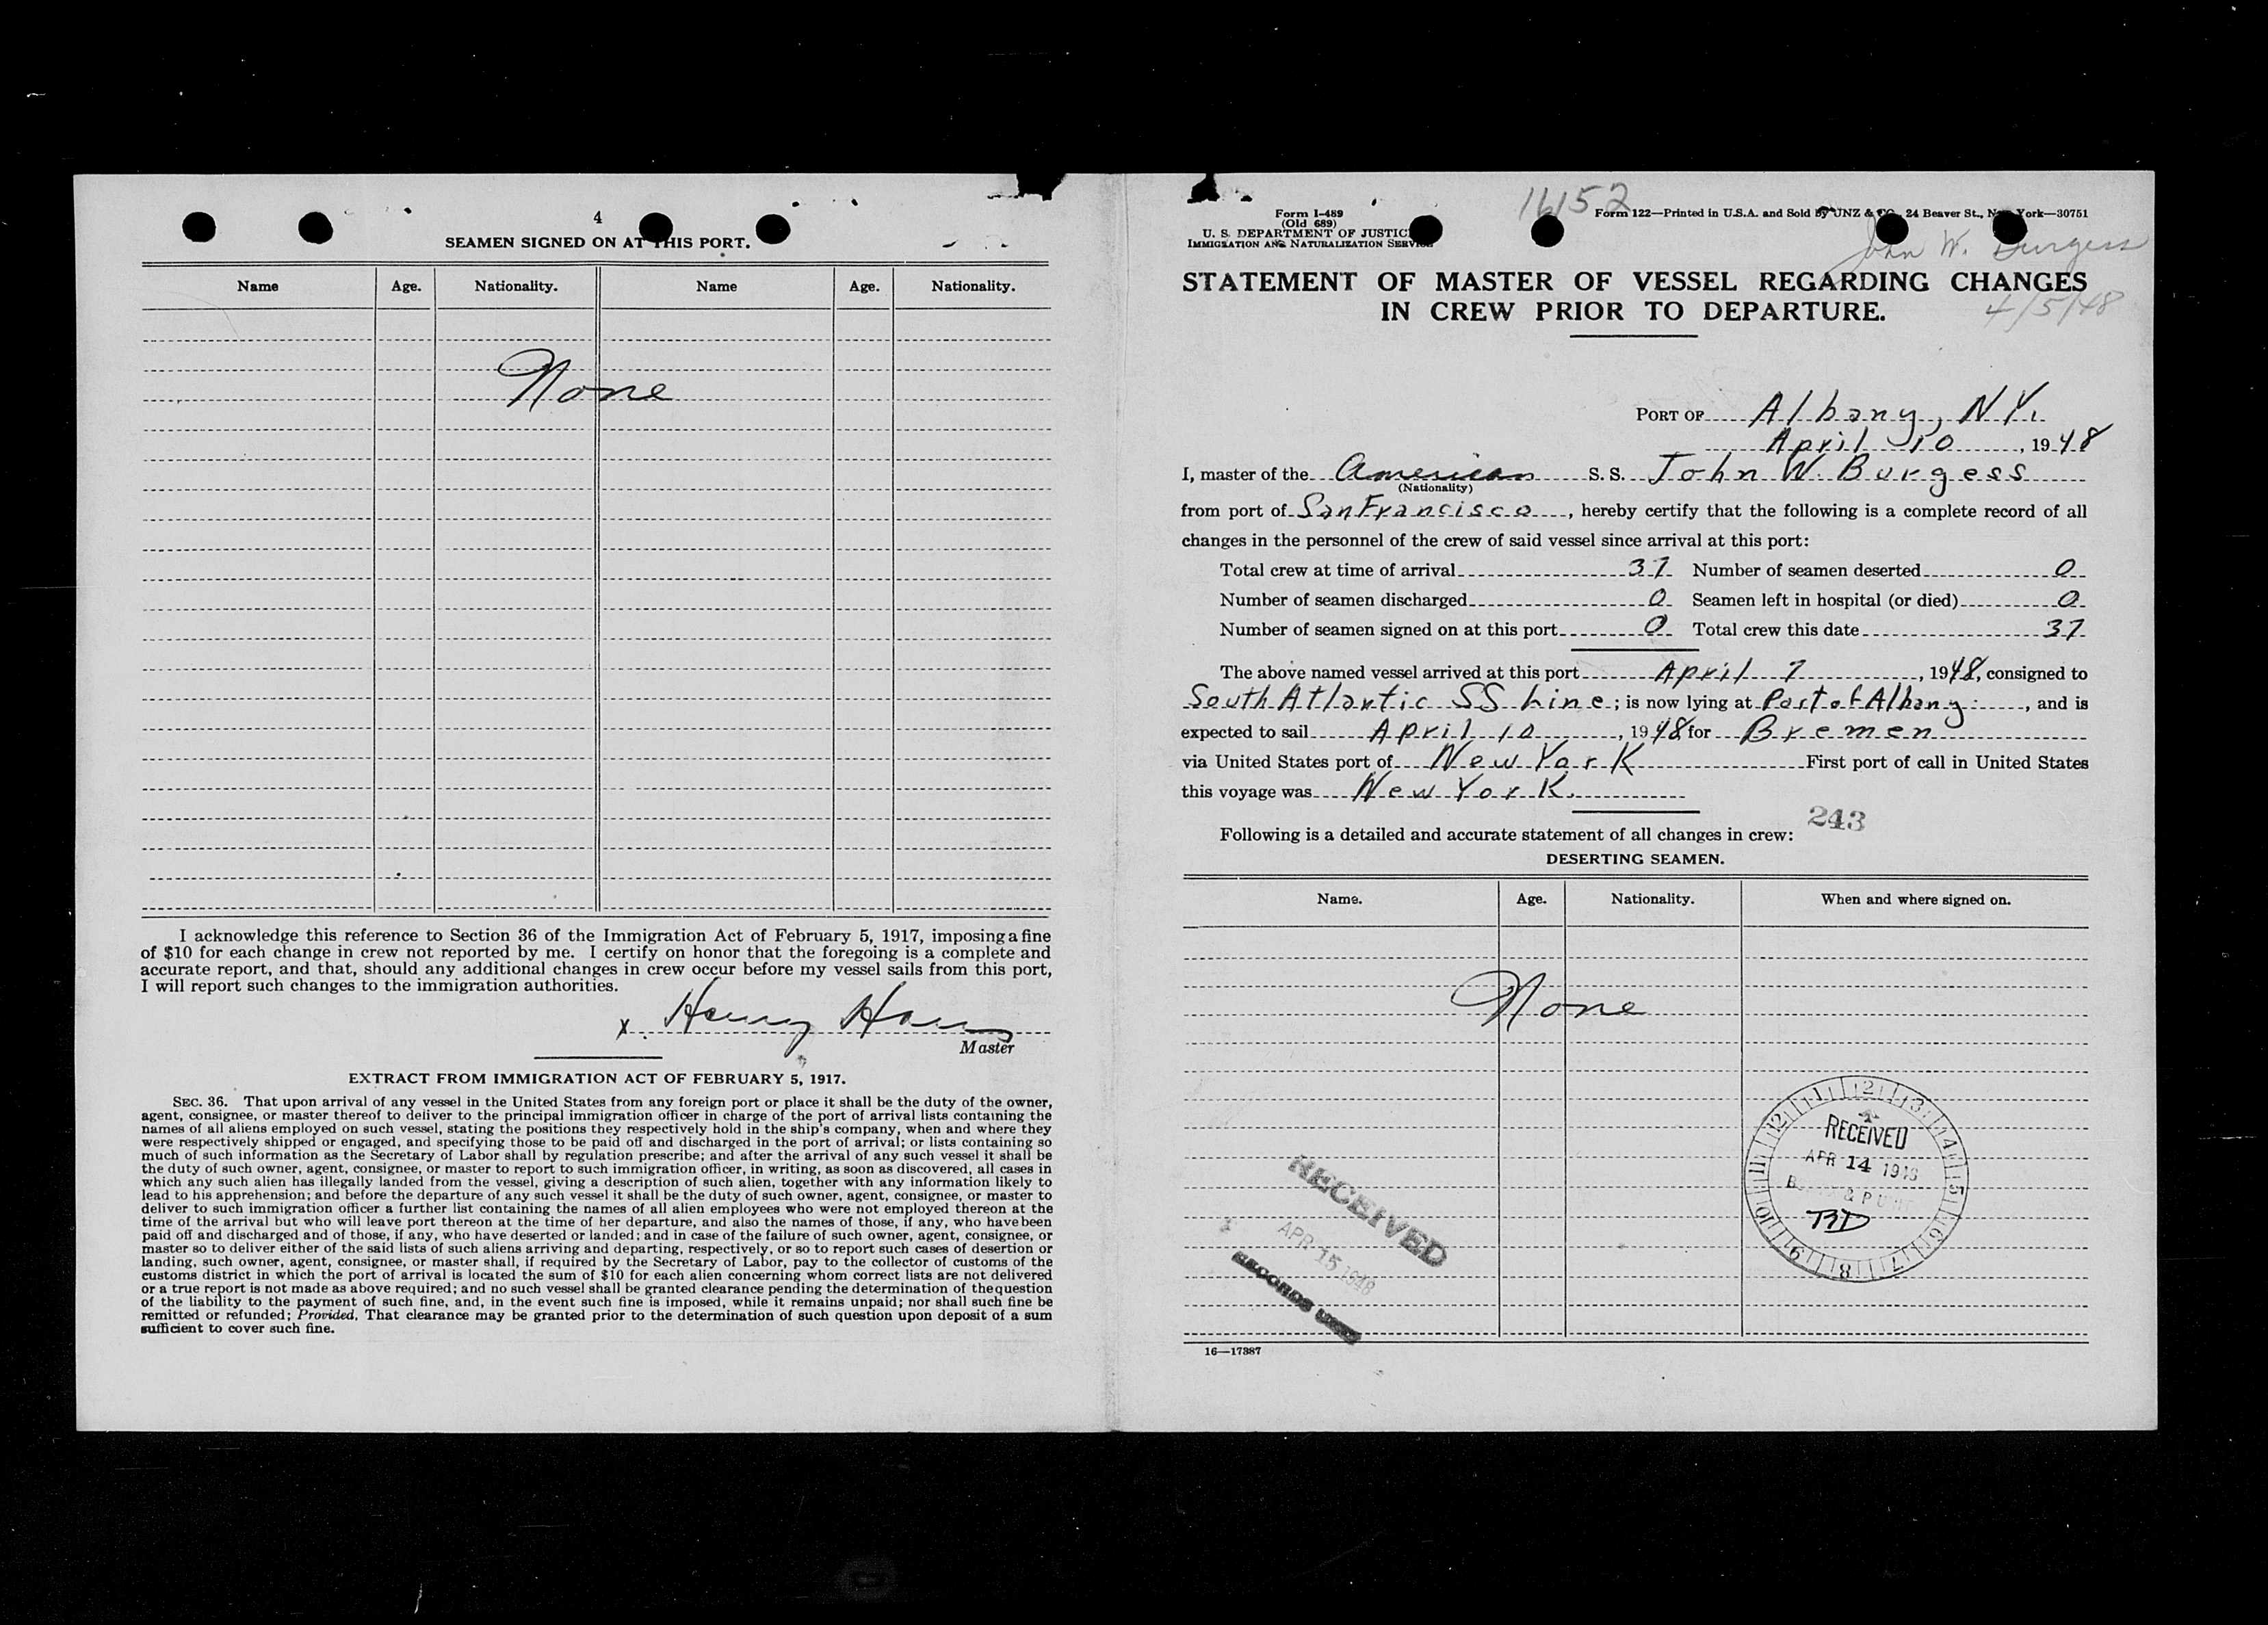 4
SEAMEN SIGNED ON AT THIS PORT.
Name Age. Nationality. Name Age. Nationality.
None
I acknowledge this reference to Section 36 of the Immigration Act of February 5, 1917, imposing a fine
of $10 for each change in crew not reported by me. I certify on honor that the foregoing is a complete and
accurate report, and that, should any additional changes in crew occur before my vessel sails from this port,
I will report such changes to the immigration authorities.
x Henry
Master
EXTRACT FROM IMMIGRATION ACT OF FEBRUARY 5, 1917.
SEC. 36. That upon arrival of any vessel in the United States from any foreign port or place it shall be the duty of the owner,
agent, consignee, or master thereof to deliver to the principal immigration officer in charge of the port of arrival lists containing the
names of all aliens employed on such vessel, stating the positions they respectively hold in the ship's company, when and where they
were respectively shipped or engaged, and specifying those to be paid off and discharged in the port of arrival; or lists containing so
much of such information as the Secretary of Labor shall by regulation prescribe; and after the arrival of any such vessel it shall be
the duty of such owner, agent, consignee, or master to report to such immigration officer, in writing, as soon as discovered, all cases in
which any such alien has illegally landed from the vessel, giving a description of such alien, together with any information likely to
lead to his apprehension; and before the departure of any such vessel it shall be the duty of such owner, agent, consignee, or master to
deliver to such immigration officer a further list containing the names of all alien employees who were not employed thereon at the
time of the arrival but who will leave port thereon at the time of her departure, and also the names of those, if any, who have been
paid off and discharged and of those, if any, who have deserted or landed; and in case of the failure of such owner, agent, consignee, or
master so to deliver either of the said lists of such aliens arriving and departing, respectively, or so to report such cases of desertion or
landing, such owner, agent, consignee, or master shall, if required by the Secretary of Labor, pay to the collector of customs of the
customs district in which the port of arrival is located the sum of $10 for each alien concerning whom correct lists are not delivered
or a true report is not made as above required; and no such vessel shall be granted clearance pending the determination of the question
of the liability to the payment of such fine, and, in the event such fine is imposed, while it remains unpaid; nor shall such fine be
remitted or refunded; Provided, That clearance may be granted prior to the determination of such question upon deposit of a sum
sufficient to cover such fine.
16152
Form I-489
(Old 689)
U. S. DEPARTMENT OF JUSTICE
IMMIGRATION AND NATURALIZATION SERVICE
Form 122—Printed in U.S.A. and Sold by UNZ & CO., 24 Beaver St., New York—30751
John W. Burgess
STATEMENT OF MASTER OF VESSEL REGARDING CHANGES
IN CREW PRIOR TO DEPARTURE.
4/5/48
PORT OF Albany, N.Y.
April 10, 1948
I, master of the American S. S. John W. Burgess
(Nationality)
from port of San Francisco, hereby certify that the following is a complete record of all
changes in the personnel of the crew of said vessel since arrival at this port:
Total crew at time of arrival 37 Number of seamen deserted 0
Number of seamen discharged 0 Seamen left in hospital (or died) 0
Number of seamen signed on at this port 0 Total crew this date 37
The above named vessel arrived at this port April 7, 1948, consigned to
South Atlantic SS Line; is now lying at Port of Albany, and is
expected to sail April 10, 1948 for Bremen
via United States port of New York First port of call in United States
this voyage was New York.
243
Following is a detailed and accurate statement of all changes in crew:
DESERTING SEAMEN.
Name. Age. Nationality. When and where signed on.
None
12 1 2 3 4 5 6 7 8 9 10 11
RECEIVED
APR 14 1948
RECEIVED
APR 15 1948
RECORDS UNIT
16—17387